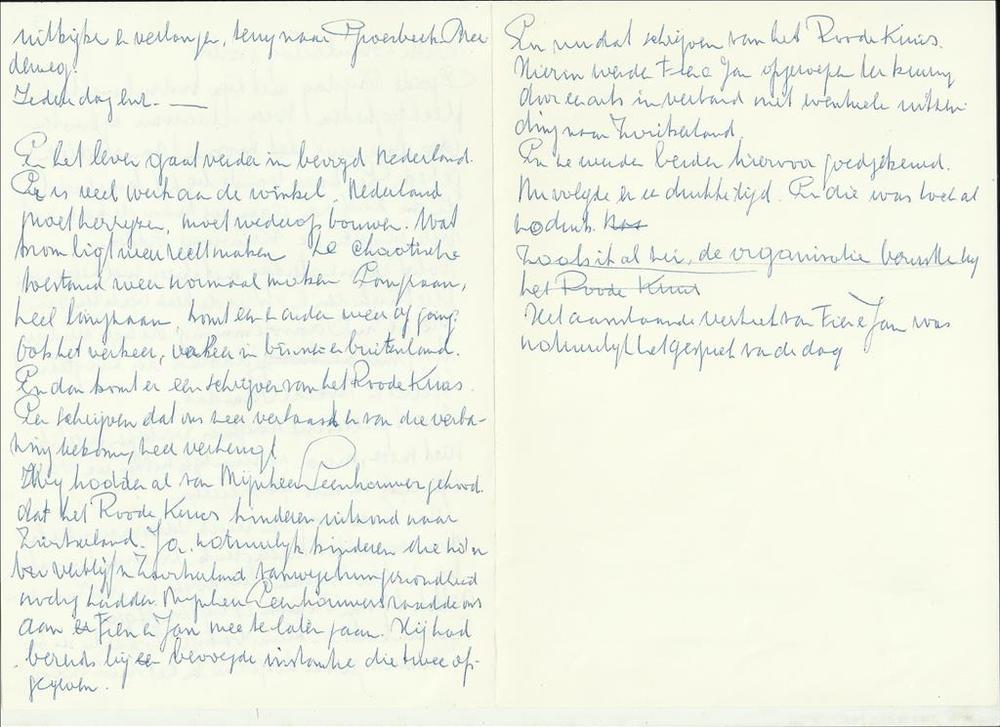 uitkijken en verlangen, terug naar Groesbeek. Mee
derweg.
Ieder dag hut. —
En het leven gaat verder in bevrijd Nederland.
Er is veel werk aan de winkel. Nederland
moet herrijzen, moet weder opbouwen. Wat
krom ligt weer recht maken. De chaotische
toestand weer normaal maken. Langzaam,
heel langzaam, komt een en ander weer op gang.
Ook het verkeer, verkeer in binnen en buitenland.
En dan komt er een schrijven van het Roode Kruis.
Een schrijven dat ons zeer verbaasd en van die verba-
zing bekomen, zeer verheugt.
Wij hadden al van Mijnheer Leenhouwers gehoord
dat het Roode Kruis kinderen uitzond naar
Zwitserland. Ja, natuurlijk kinderen die zo'n
verblijf in Zwitserland vanwege hun gezondheid
nodig hadden. Mijnheer Leenhouwers raadde ons
aan Fien en Jan mee te laten gaan. Hij had
bereids bij een bevoegde instantie die twee op-
gegeven.
En nu dat schrijven van het Roode Kruis.
Hierin werden Fien en Jan opgeroepen ter keuring
door een arts in verband met eventuele uitzen
ding naar Zwitserland.
En ze werden beiden hiervoor goedgekeurd.
Nu volgde er een drukke tijd. En die was toch al
zo druk.
Zoals ik al zei, de organisatie berustte bij
het Roode Kruis
Het aanstaande vertrek van Fien en Jan was
natuurlijk het gesprek van de dag